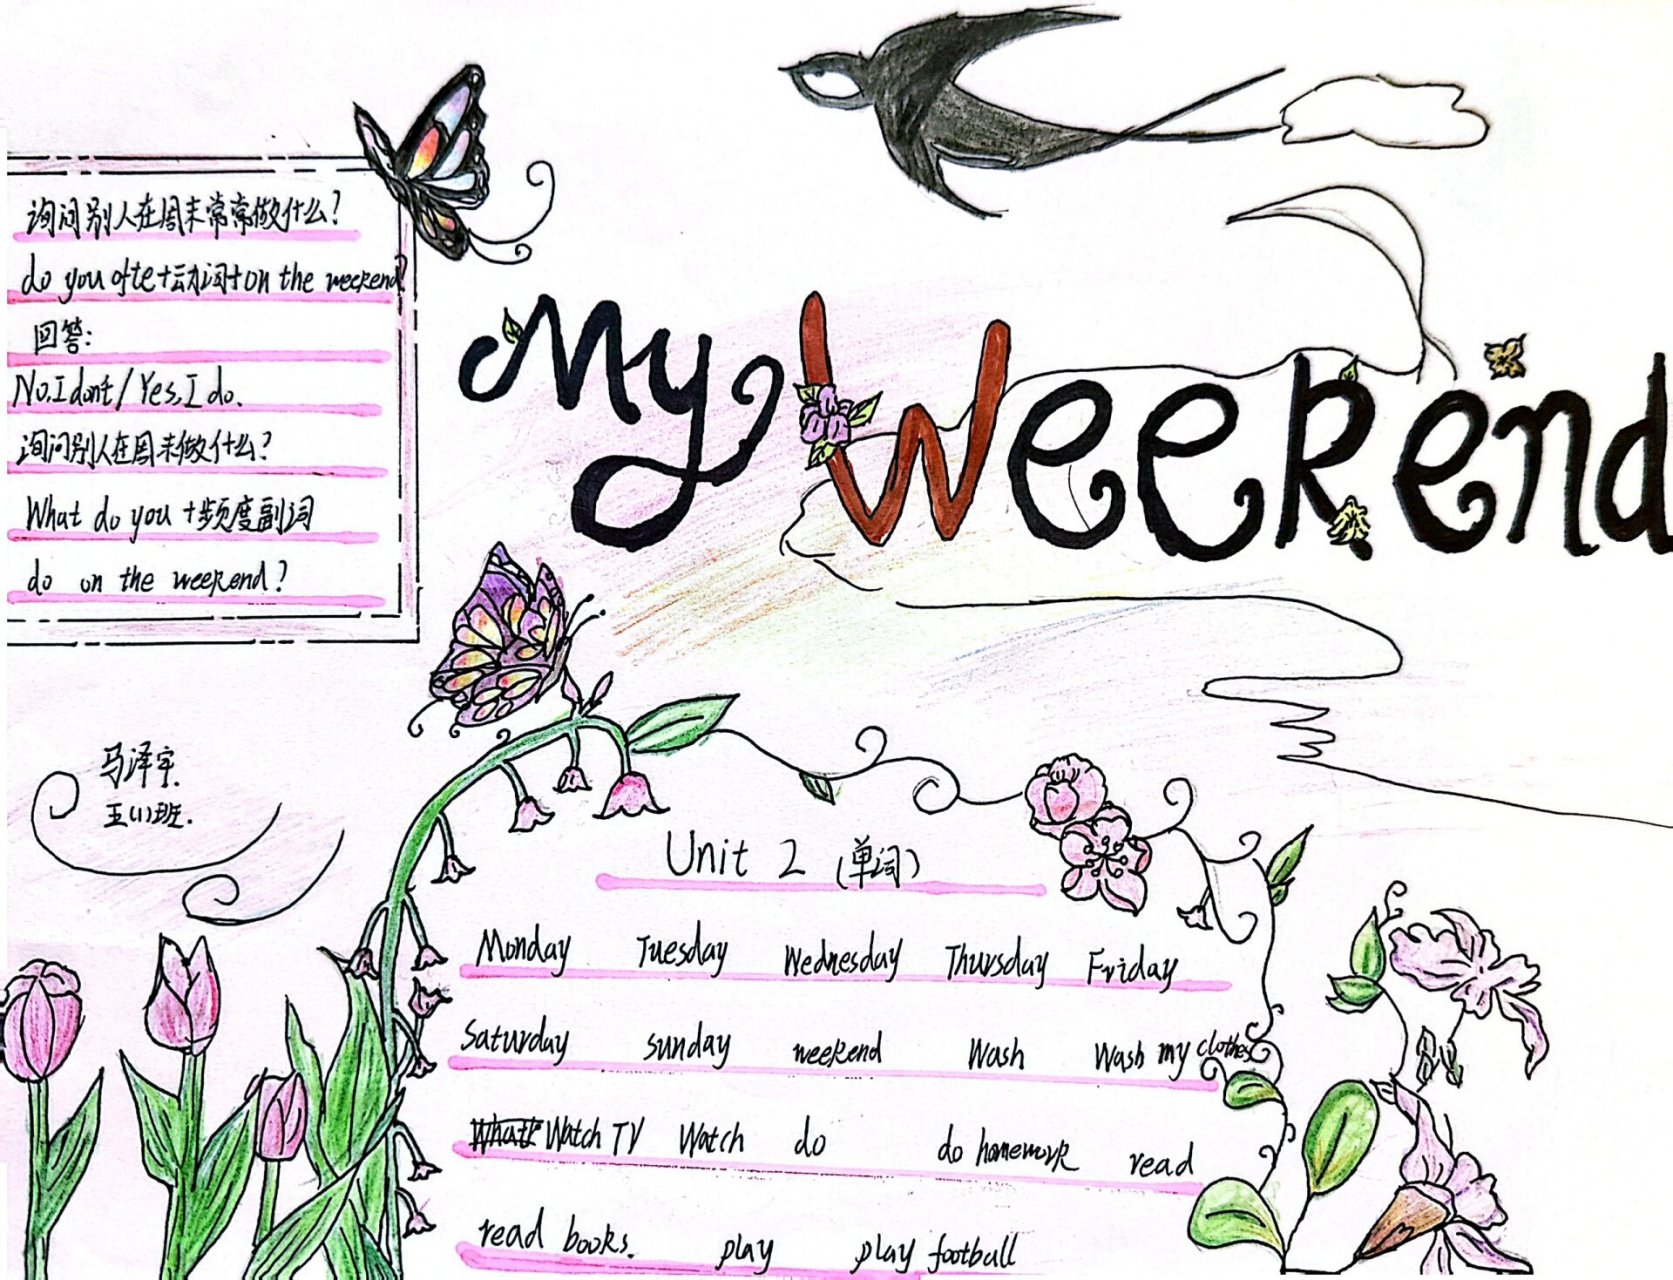 My Weekend
询问别人在周末常常做什么?
do you ofte+动词+on the weekend?
回答:
No,I dont/Yes,I do.
询问别人在周末做什么?
What do you +频度副词
do on the weekend?
马泽宇.
五(1)班.
Unit 2 (单词)
Monday Tuesday Wednesday Thursday Friday
Saturday sunday weekend Wash Wash my clothes
Watch TV Watch do do homework read
read books. play play football